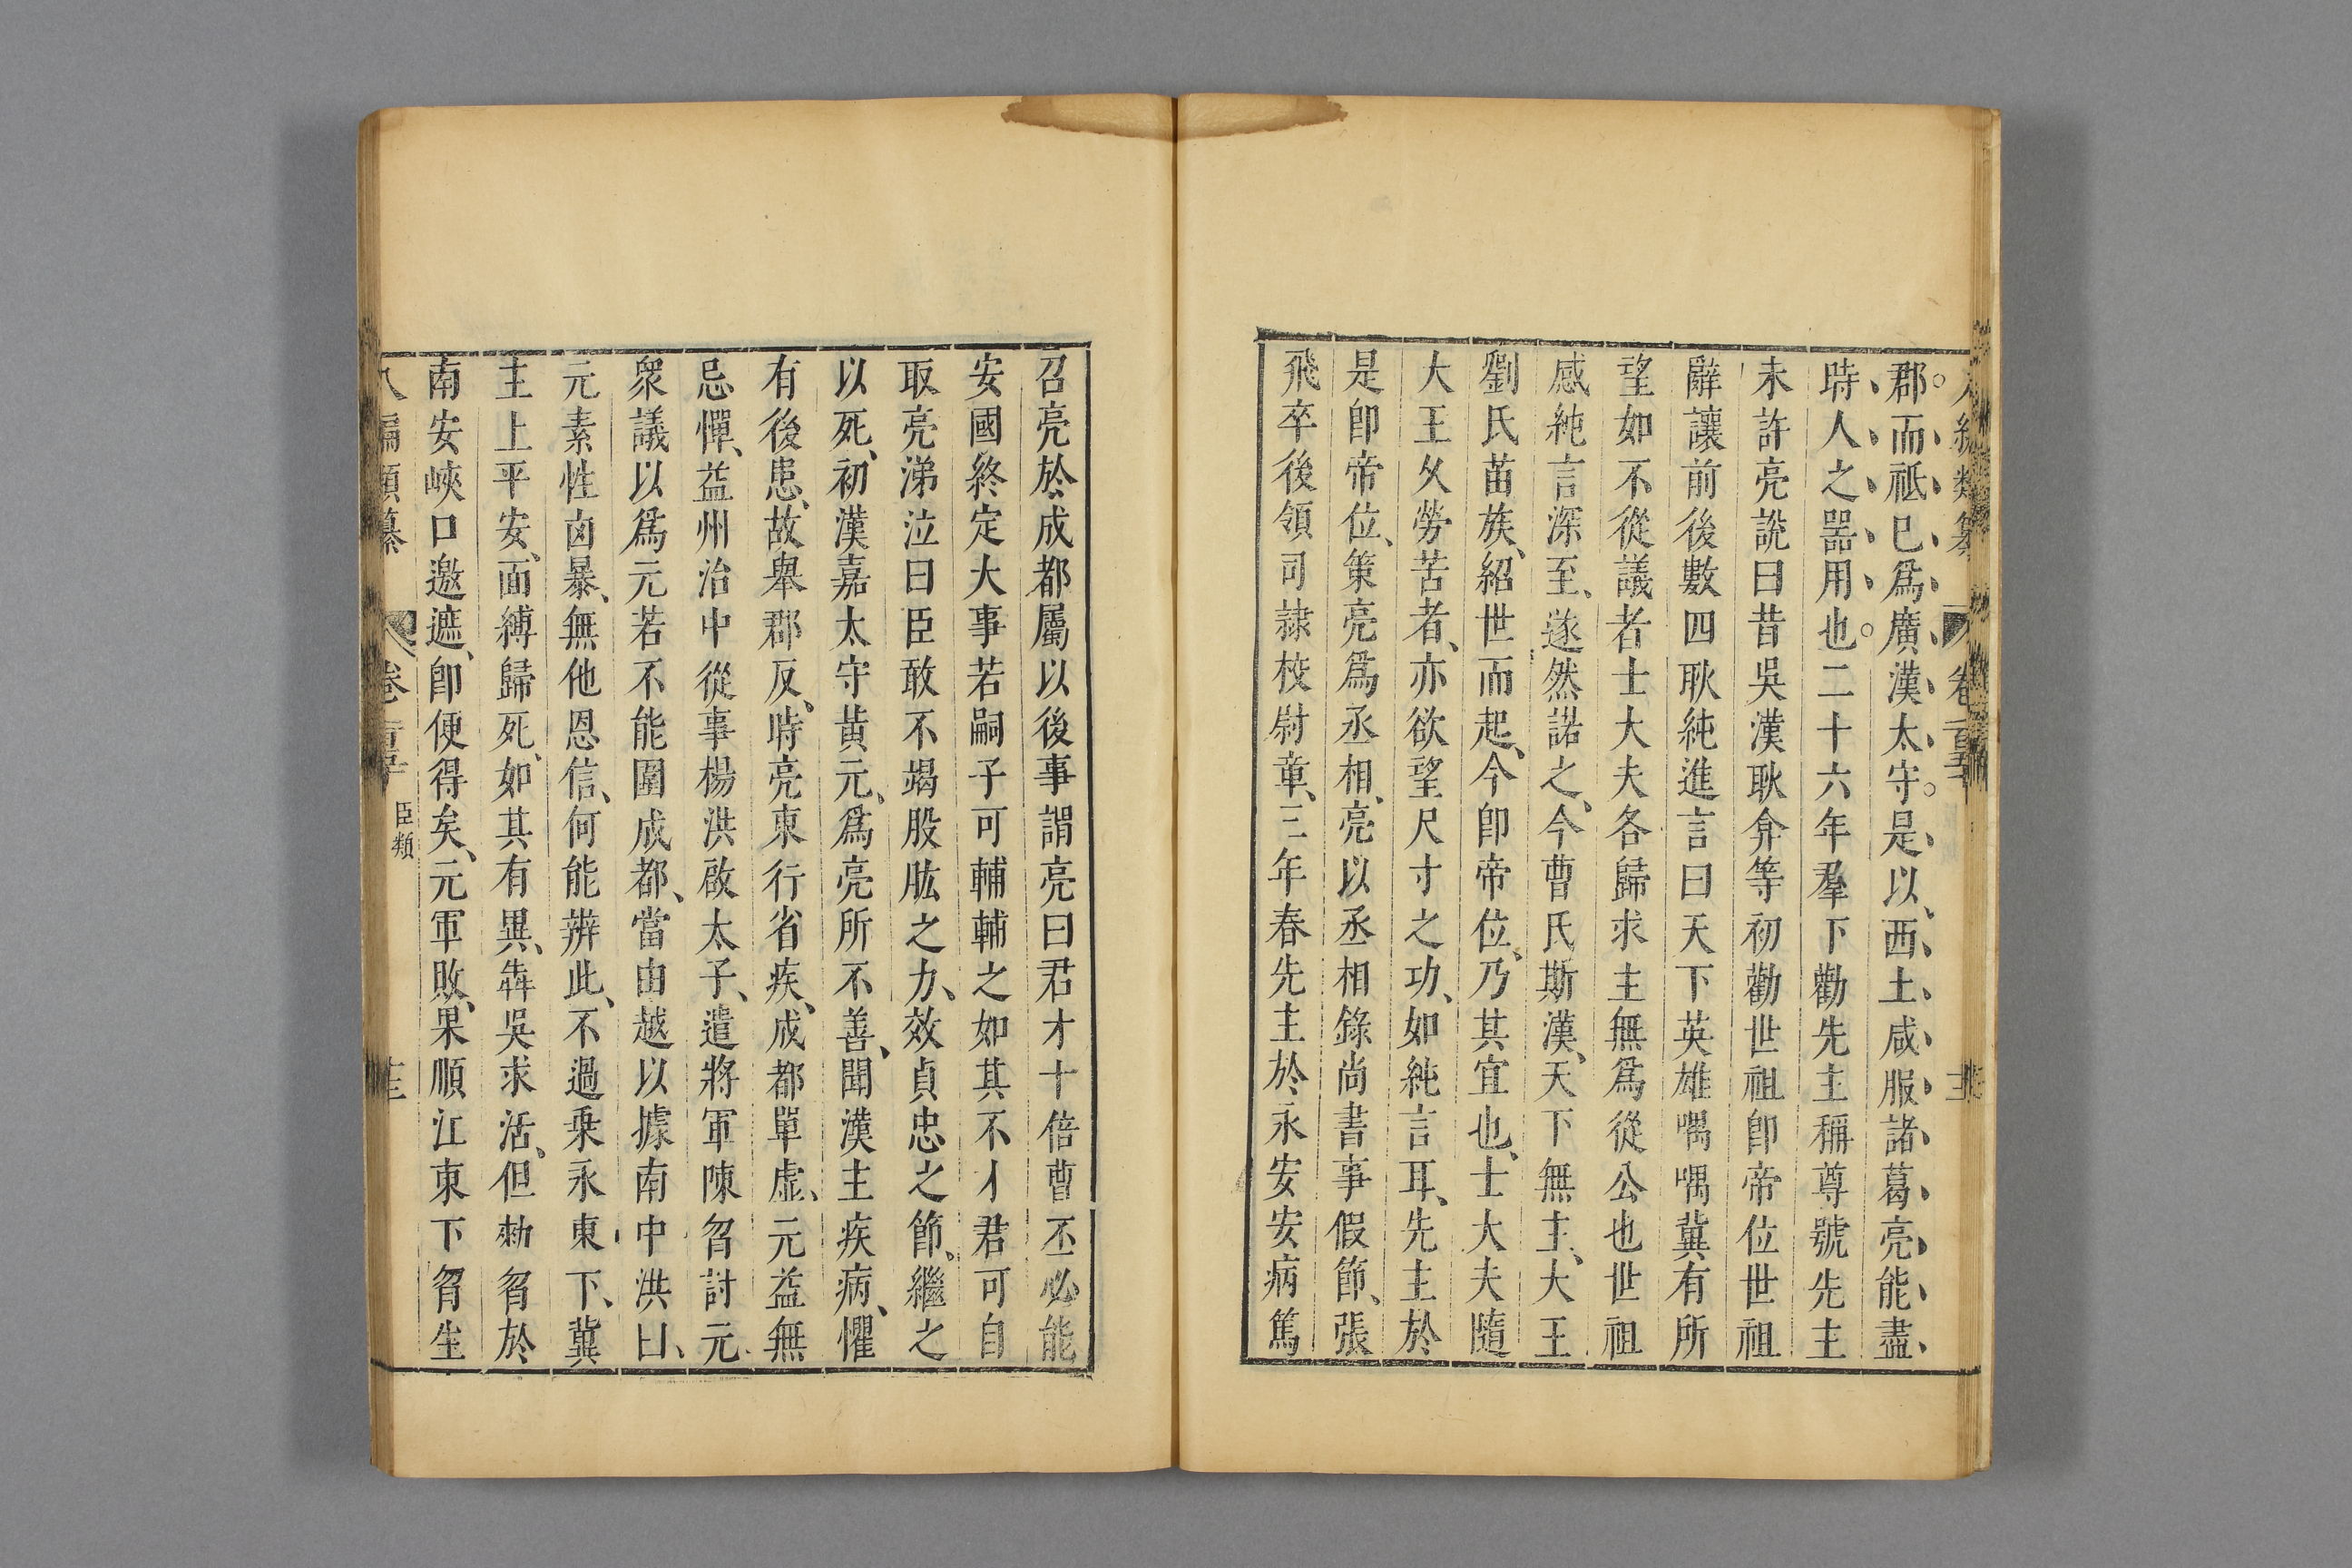 郡。而、祗、已、爲、廣、漢、太、守。是、以、西、土、咸、服、諸、葛、亮、能、盡、
時、人、之、器、用、也。二十六年羣下勸先主稱尊號先主
未許亮說曰昔吳漢耿弇等初勸世祖卽帝位世祖
辭讓前後數四耿純進言曰天下英雄喁喁冀有所
望如不從議者士大夫各歸求主無爲從公也世祖
感純言深至、遂然諾之、今曹氏斯漢、天下無主、大王
劉氏苗族、紹世而起、今卽帝位、乃其宜也、士大夫隨
大王久勞苦者、亦欲望尺寸之功、如純言耳、先主於
是卽帝位、策亮爲丞相、亮以丞相錄尚書事假節、張
飛卒後領司隷校尉章、三年春先主於永安安病篤
召亮於成都屬以後事謂亮曰君才十倍曹丕必能
安國終定大事若嗣子可輔輔之如其不才君可自
取亮涕泣曰臣敢不竭股肱之力、效貞忠之節、繼之
以死、初漢嘉太守黃元、爲亮所不善、聞漢主疾病、懼
有後患、故舉郡反、時亮東行省疾、成都單虛、元益無
忌憚、益州治中從事楊洪啟太子、遣將軍陳曶討元
衆議以爲元若不能圍成都、當由越以據南中洪曰、
元素性凶暴、無他恩信、何能辨此、不過乗永東下、冀
主上平安、面縛歸死、如其有異、犇吳求活、但勑曶於
南安峽口邀遮、卽便得矣、元軍敗、果順江東下曶生
八編類纂 卷 臣類